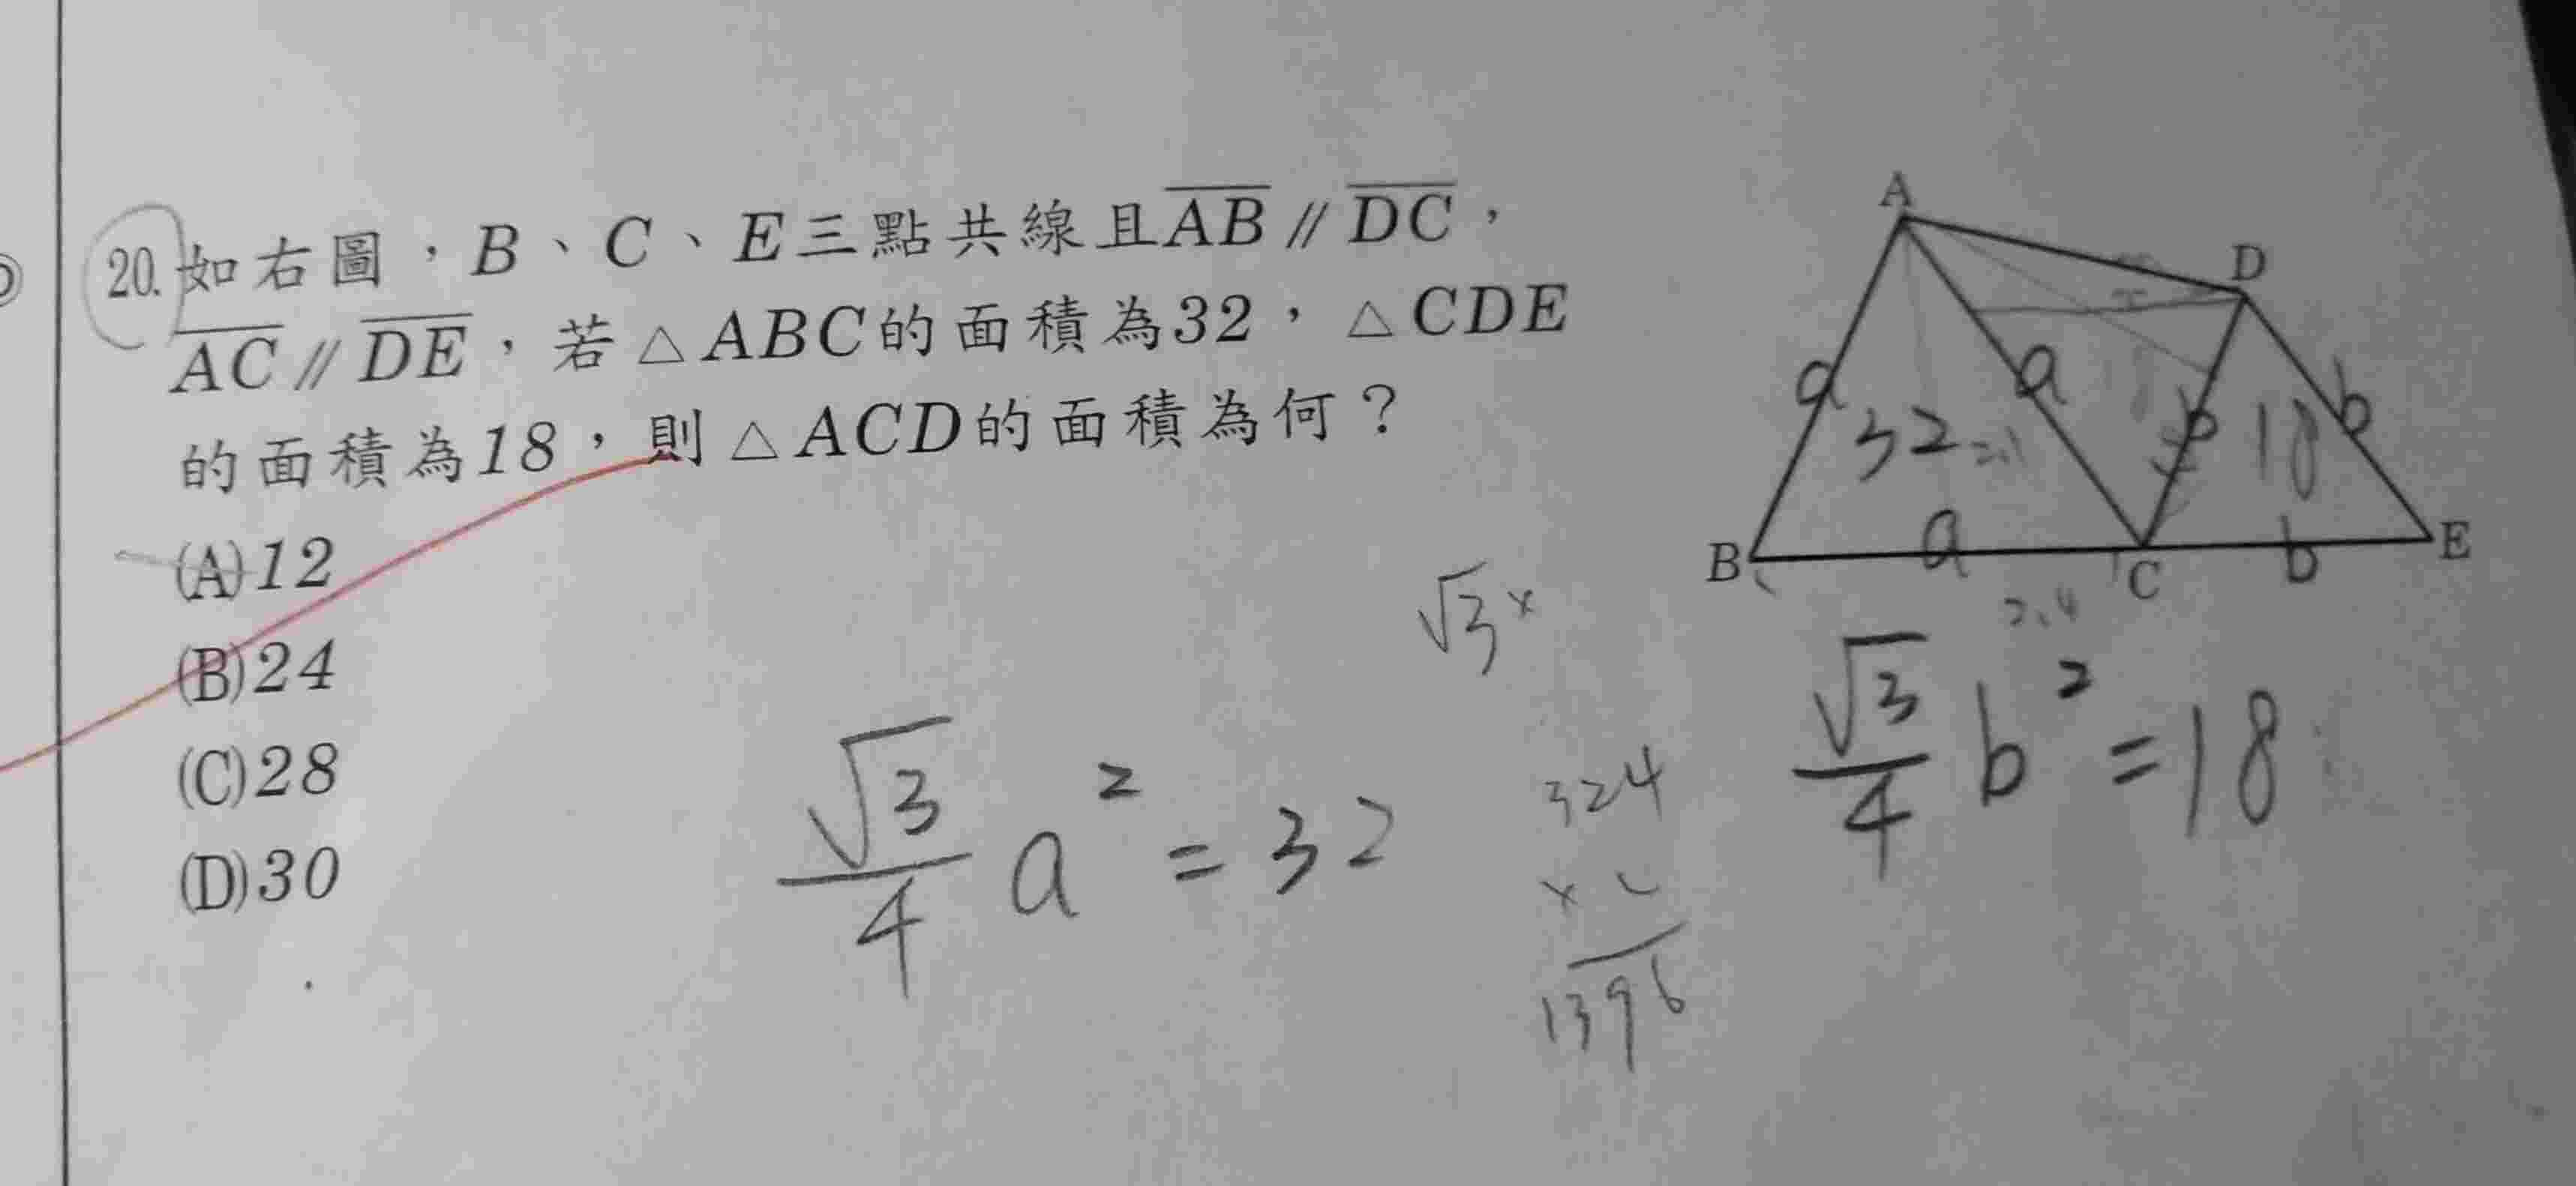 20.如右圖，B、C、E三點共線且AB∥DC，
AC∥DE，若△ABC的面積為32，△CDE
的面積為18，則△ACD的面積為何？
(A)12
(B)24
(C)28
(D)30
A
D
a
a
b
b
32
18
B
a
C
b
E
√3×
√3/4 a² = 32
324
1396
√3/4 b² = 18